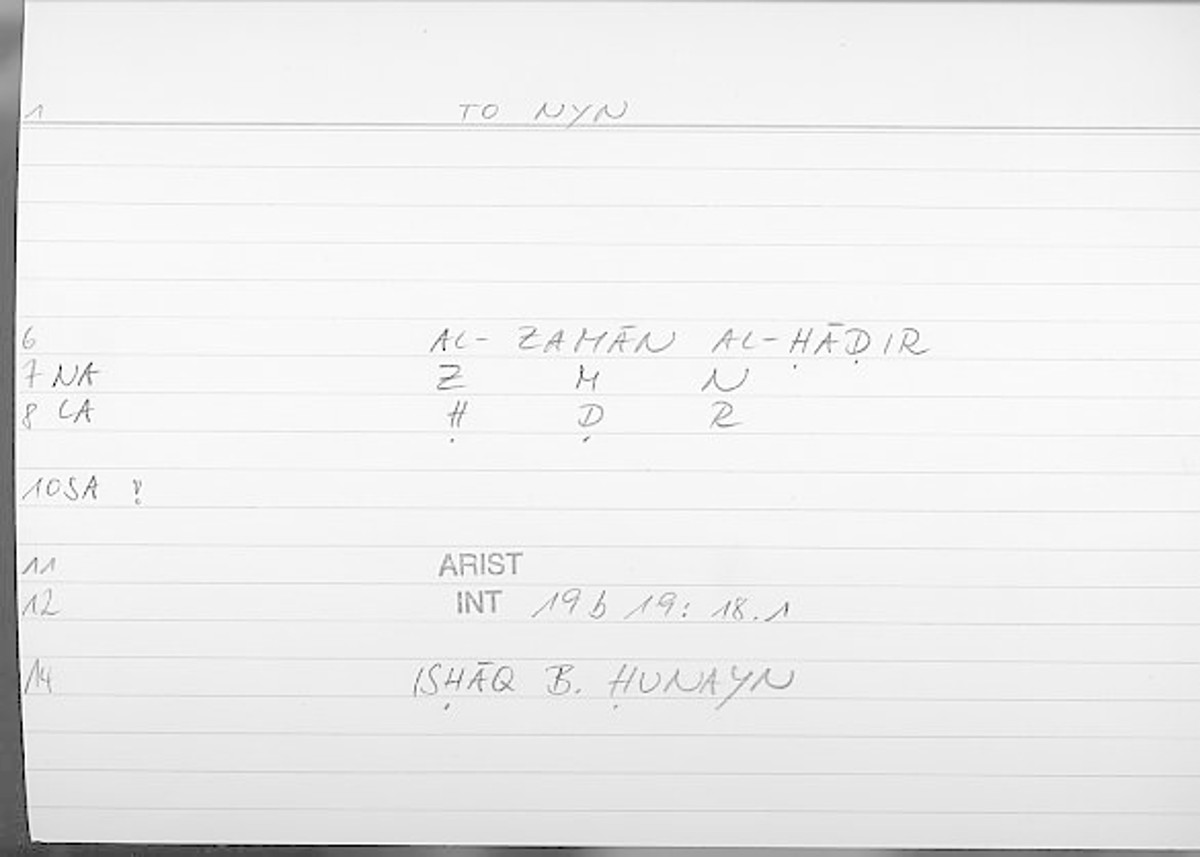 1 TO NYN
6 AL-ZAMĀN AL-ḤĀḌIR
7 NA Z M N
8 LA Ḥ Ḍ R
10 SA ?
11 ARIST
12 INT 19b 19: 18.1
14 ISḤĀQ B. ḤUNAYN